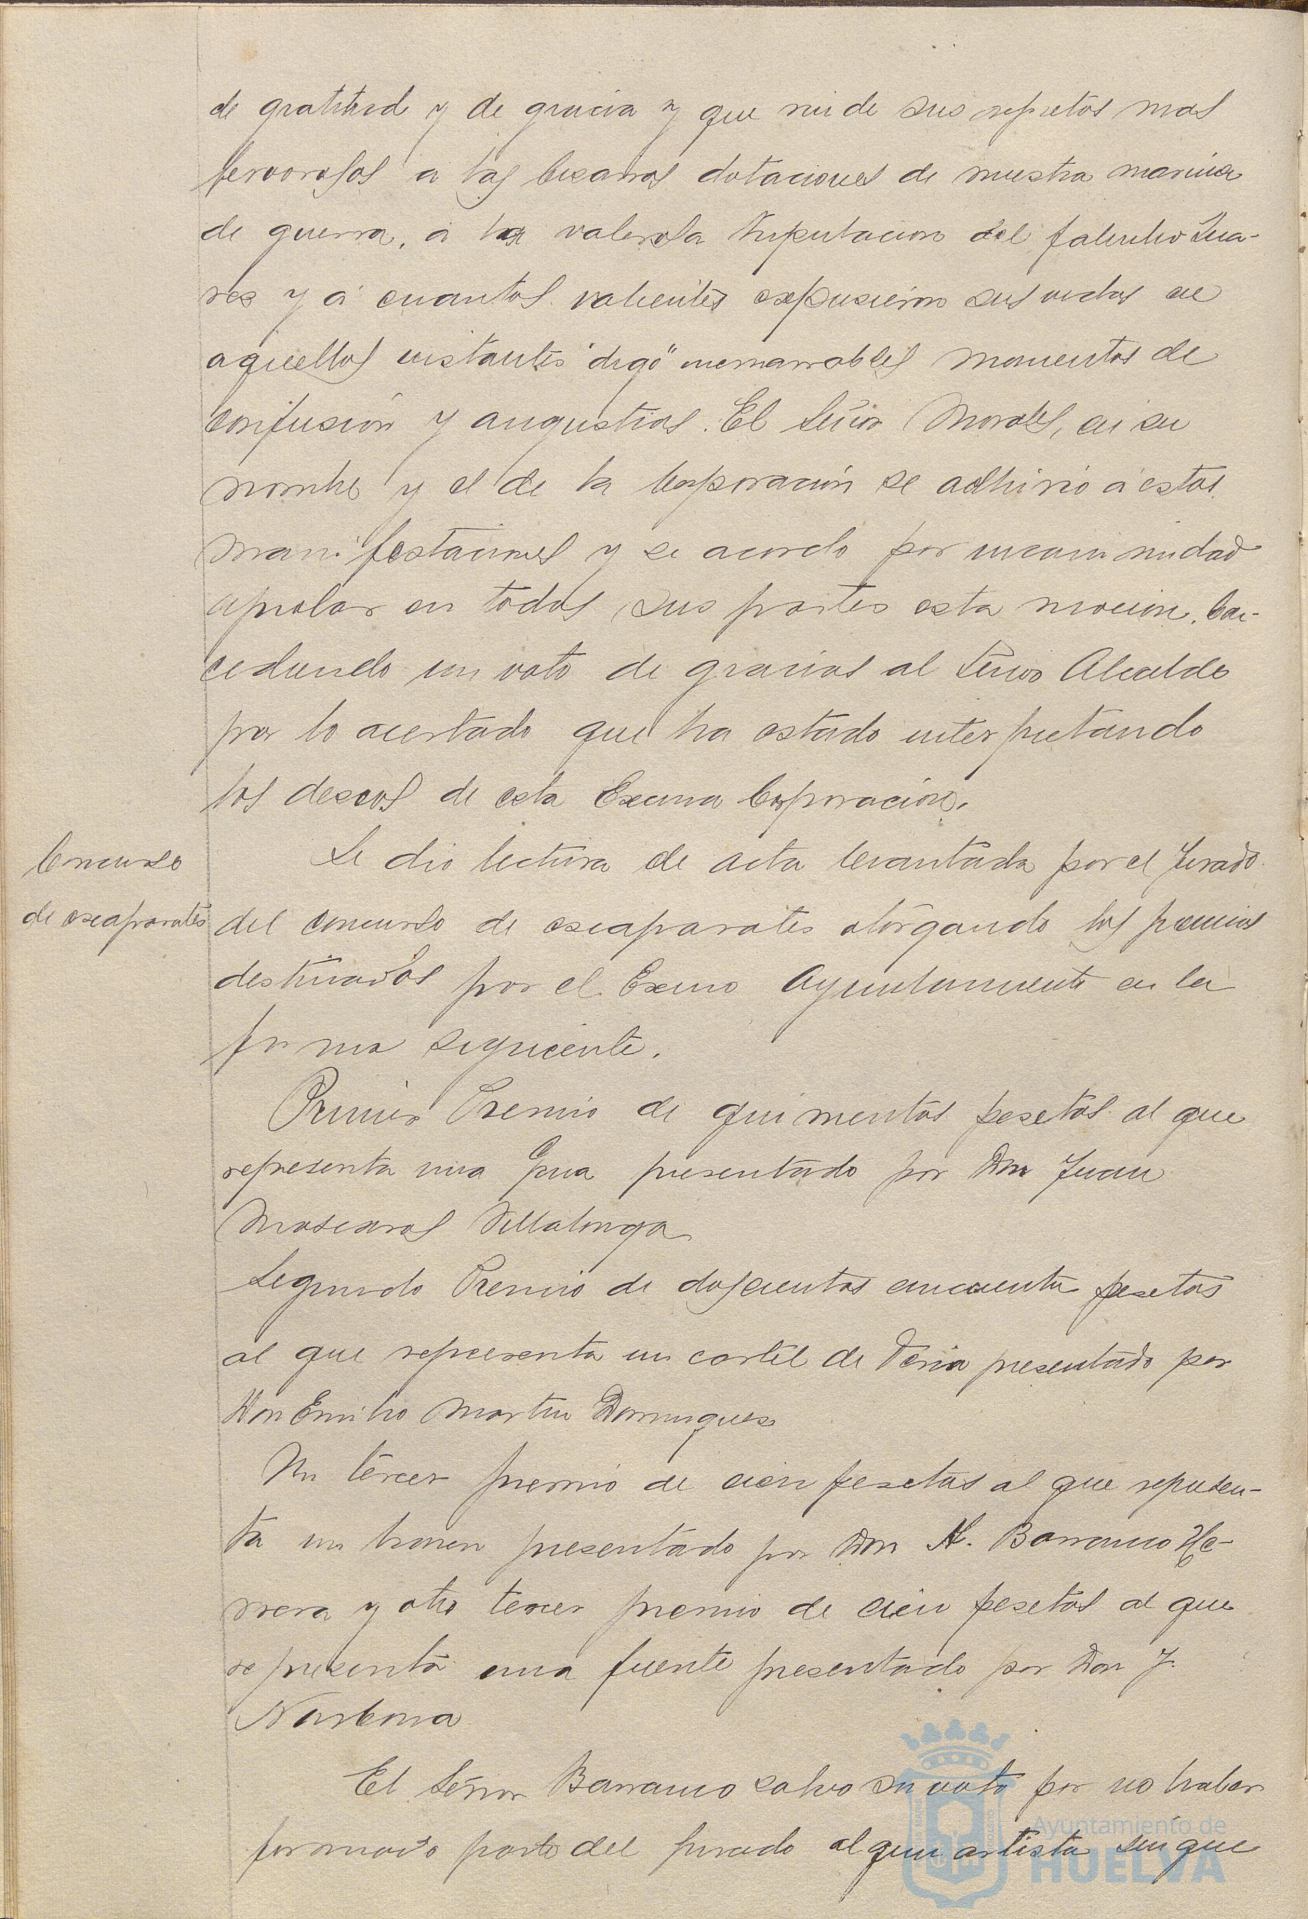 de gratitud y de gracia y que rinde sus respetos mas
fervorosos a las bizarras dotaciones de nuestra marina
de guerra, a la valerosa tripulacion del falucho Sua-
res y á cuantos valientes expusieron sus vidas en
aquellos instantes "digo" inenarrables momentos de
confusión y angustias. El Señor Morales, en su
nombre y el de la Corporación se adhirió á estas
manifestaciones y se acordo por unanimidad
aprobar en todas sus partes esta mocion, con-
cediendo un voto de gracias al Señor Alcalde
por lo acertado que ha estado interpretando
los deseos de esta Excma Corporacion.
Concurso
de escaparates
Se dio lectura de acta levantada por el Jurado
del concurso de escaparates otorgando los premios
destinados por el Excmo Ayuntamiento en la
forma siguiente.
Primer Premio de quinientas pesetas al que
representa una presentado por Don Juan
Mascaros Villalonga
Segundo Premio de doscientas cincuenta pesetas
al que representa un cartel de Feria presentado por
Don Emilio Martin Dominguez
Un tercer premio de cien pesetas al que represen-
ta un presentado por Don A. Barranco He-
rrera y otro tercer premio de cien pesetas al que
representa una fuente presentado por Don J.
Narbona
El Señor Barranco salvo su voto por no haber
formado parte del jurado algun artista sin que
Ayuntamiento de
HUELVA